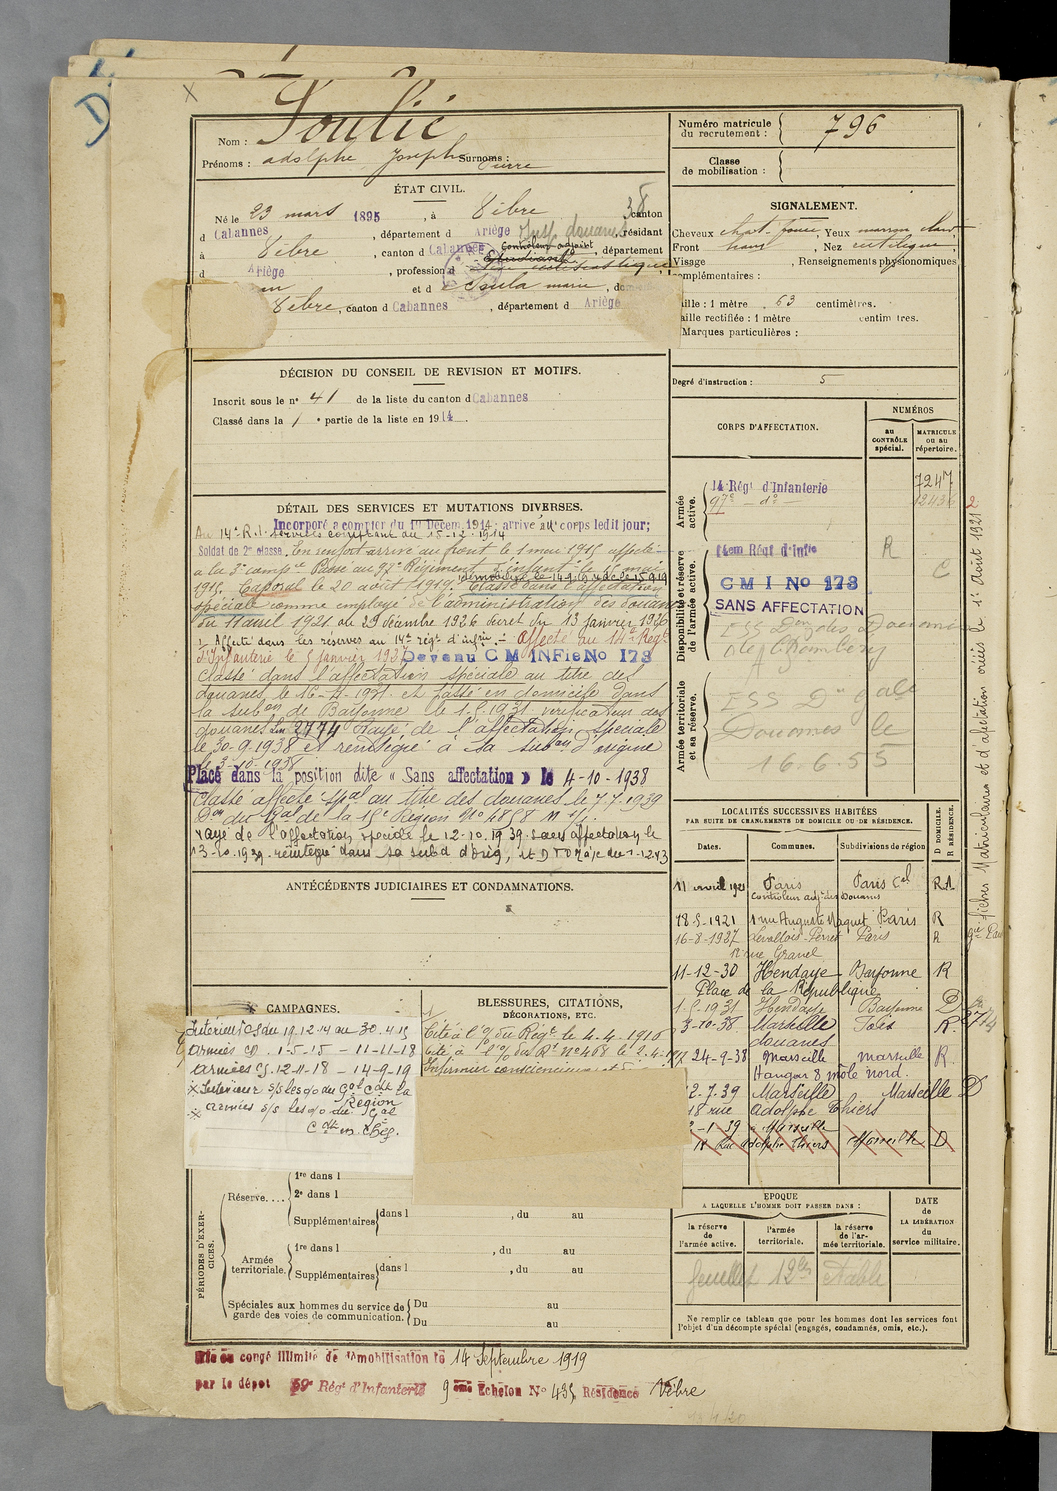 Soulié
Nom :
Prénoms : adolphe Joseph Surnoms : Pierre
ÉTAT CIVIL.
Né le 23 mars 1895, à Vèbre canton
d Cabannes, département d Ariège résidant
à Vèbre, canton d Cabannes, département
Contrôleur adjoint
d Ariège, profession d
et d Soula marie, do
Vèbre, canton d Cabannes, département d Ariège
DÉCISION DU CONSEIL DE REVISION ET MOTIFS.
Inscrit sous le n° 41 de la liste du canton d Cabannes
Classé dans la 1 e partie de la liste en 1914.
DÉTAIL DES SERVICES ET MUTATIONS DIVERSES.
Incorporé a compter du 1er Décem. 1914 ; arrivé au corps ledit jour;
Au 14e R.I. services comptant du 15-12-1914
Soldat de 2e classe. En renfort arrivé au front le 1 mai 1915 affecté
a la 3e comp ie Passé au 97e Régiment d'infant ie le 15 mai
démobilisé le 14 9 19
1915. Caporal le 20 août 1919. Classé dans l'affectation
spéciale comme employé de l'administration des douanes
du 11 avril 1921 au 29 décembre 1926 décret du 13 janvier 1926
Affecté dans les réserves au 14e rég t d'inf ie. - Affecté au 14e Rég t
d'Infanterie le 5 janvier 1927 Devenu C M INFie No 173
Classé dans l'affectation spéciale au titre des
douanes, le 16-4-1931 et passé en domicile dans
la sub on de Bayonne le 1.5.1931 vérificateur des
douanes Lon 2774 Rayé de l'affectation spéciale
le 30-9-1938 et réintégré à sa sub on d'origine
le 3-10-1938
Placé dans la position dite « Sans affectation » le 4-10-1938
Classé affecté sp al au titre des douanes le 7.7.1939
D on du G al de la 15e Région N° 4858
rayé de l'affectation spéciale le 12-10-1939. sans affectation le
13-10-1939. réintégré dans sa subd d'orig,
ANTÉCÉDENTS JUDICIAIRES ET CONDAMNATIONS.
CAMPAGNES.
Intérieur CS du 19.12.14 au 30.4.15
Armées CD. 1-5-15 - 11-11-18
Armées CS 12-11-18 - 14-9-19
x Intérieur s/s les o/o du G al C dt la
Région
x armées s/s les o/o du G al
C dt en Chef.
BLESSURES, CITATIONS,
DÉCORATIONS, ETC.
Cité à l'o/ du Rég t le 4.4.1916
Cité à l'o/ du R t N° 468 le 2.4.
Infirmier consciencieux et
PÉRIODES D'EXERCICES.
Réserve....
1re dans l
2e dans l
Supplémentaires dans l , du au
Armée territoriale.
1re dans l , du au
Supplémentaires dans l , du au
Spéciales aux hommes du service de garde des voies de communication.
Du au
Du au
Numéro matricule du recrutement : 796
Classe de mobilisation :
SIGNALEMENT.
Cheveux chat. foncé, Yeux marron clair
Front haut, Nez rectiligne,
Visage , Renseignements physionomiques
complémentaires :
Taille : 1 mètre 63 centimètres.
Taille rectifiée : 1 mètre centimètres.
Marques particulières :
Degré d'instruction : 5
CORPS D'AFFECTATION.
NUMÉROS
au CONTRÔLE spécial.
MATRICULE ou au répertoire.
Armée active.
14 Régt d'Infanterie 7247
97e - do - 12436
Disponibilité et réserve de l'armée active.
14em Régt d'Infie R
C M I No 173 C
SANS AFFECTATION
ESS D on des Douanes
de Chambéry
Armée territoriale et sa réserve.
ESS D on g ale
Douanes le
16.6.55
LOCALITÉS SUCCESSIVES HABITÉES
PAR SUITE DE CHANGEMENTS DE DOMICILE OU DE RÉSIDENCE.
Dates. Communes. Subdivisions de région D DOMICILE. R RÉSIDENCE.
11 avril 1921 Paris Paris C al R.A
Controleur adj. des Douanes
18-5-1921 1 rue Auguste Maquet Paris R
16-8-1927 Levallois-Perret Paris R
rue Gravel
11-12-30 Hendaye Bayonne R
Place de la République
1-5-1931 Hendaye Bayonne D
3-10-38 Marseille Foix R. 2774
douanes
24-9-38 Marseille Marseille R
Hangar 8 môle nord.
12.7.39 Marseille Marseille D
18 rue Adolphe Thiers
-1-39 à Marseille
Rue Adolphe Thiers Marseille D
2e fiches Matriculaires et d'affectation créées le 1er Août 1921
EPOQUE
A LAQUELLE L'HOMME DOIT PASSER DANS :
la réserve de l'armée active.
l'armée territoriale.
la réserve de l'armée territoriale.
DATE de LA LIBÉRATION du service militaire.
feuillet
Ne remplir ce tableau que pour les hommes dont les services font
l'objet d'un décompte spécial (engagés, condamnés, omis, etc.).
Mis en congé illimité de démobilisation le 14 Septembre 1919
par le dépôt 59e Régt d'Infanterie 9 eme Echelon No 435 Résidence Vèbre